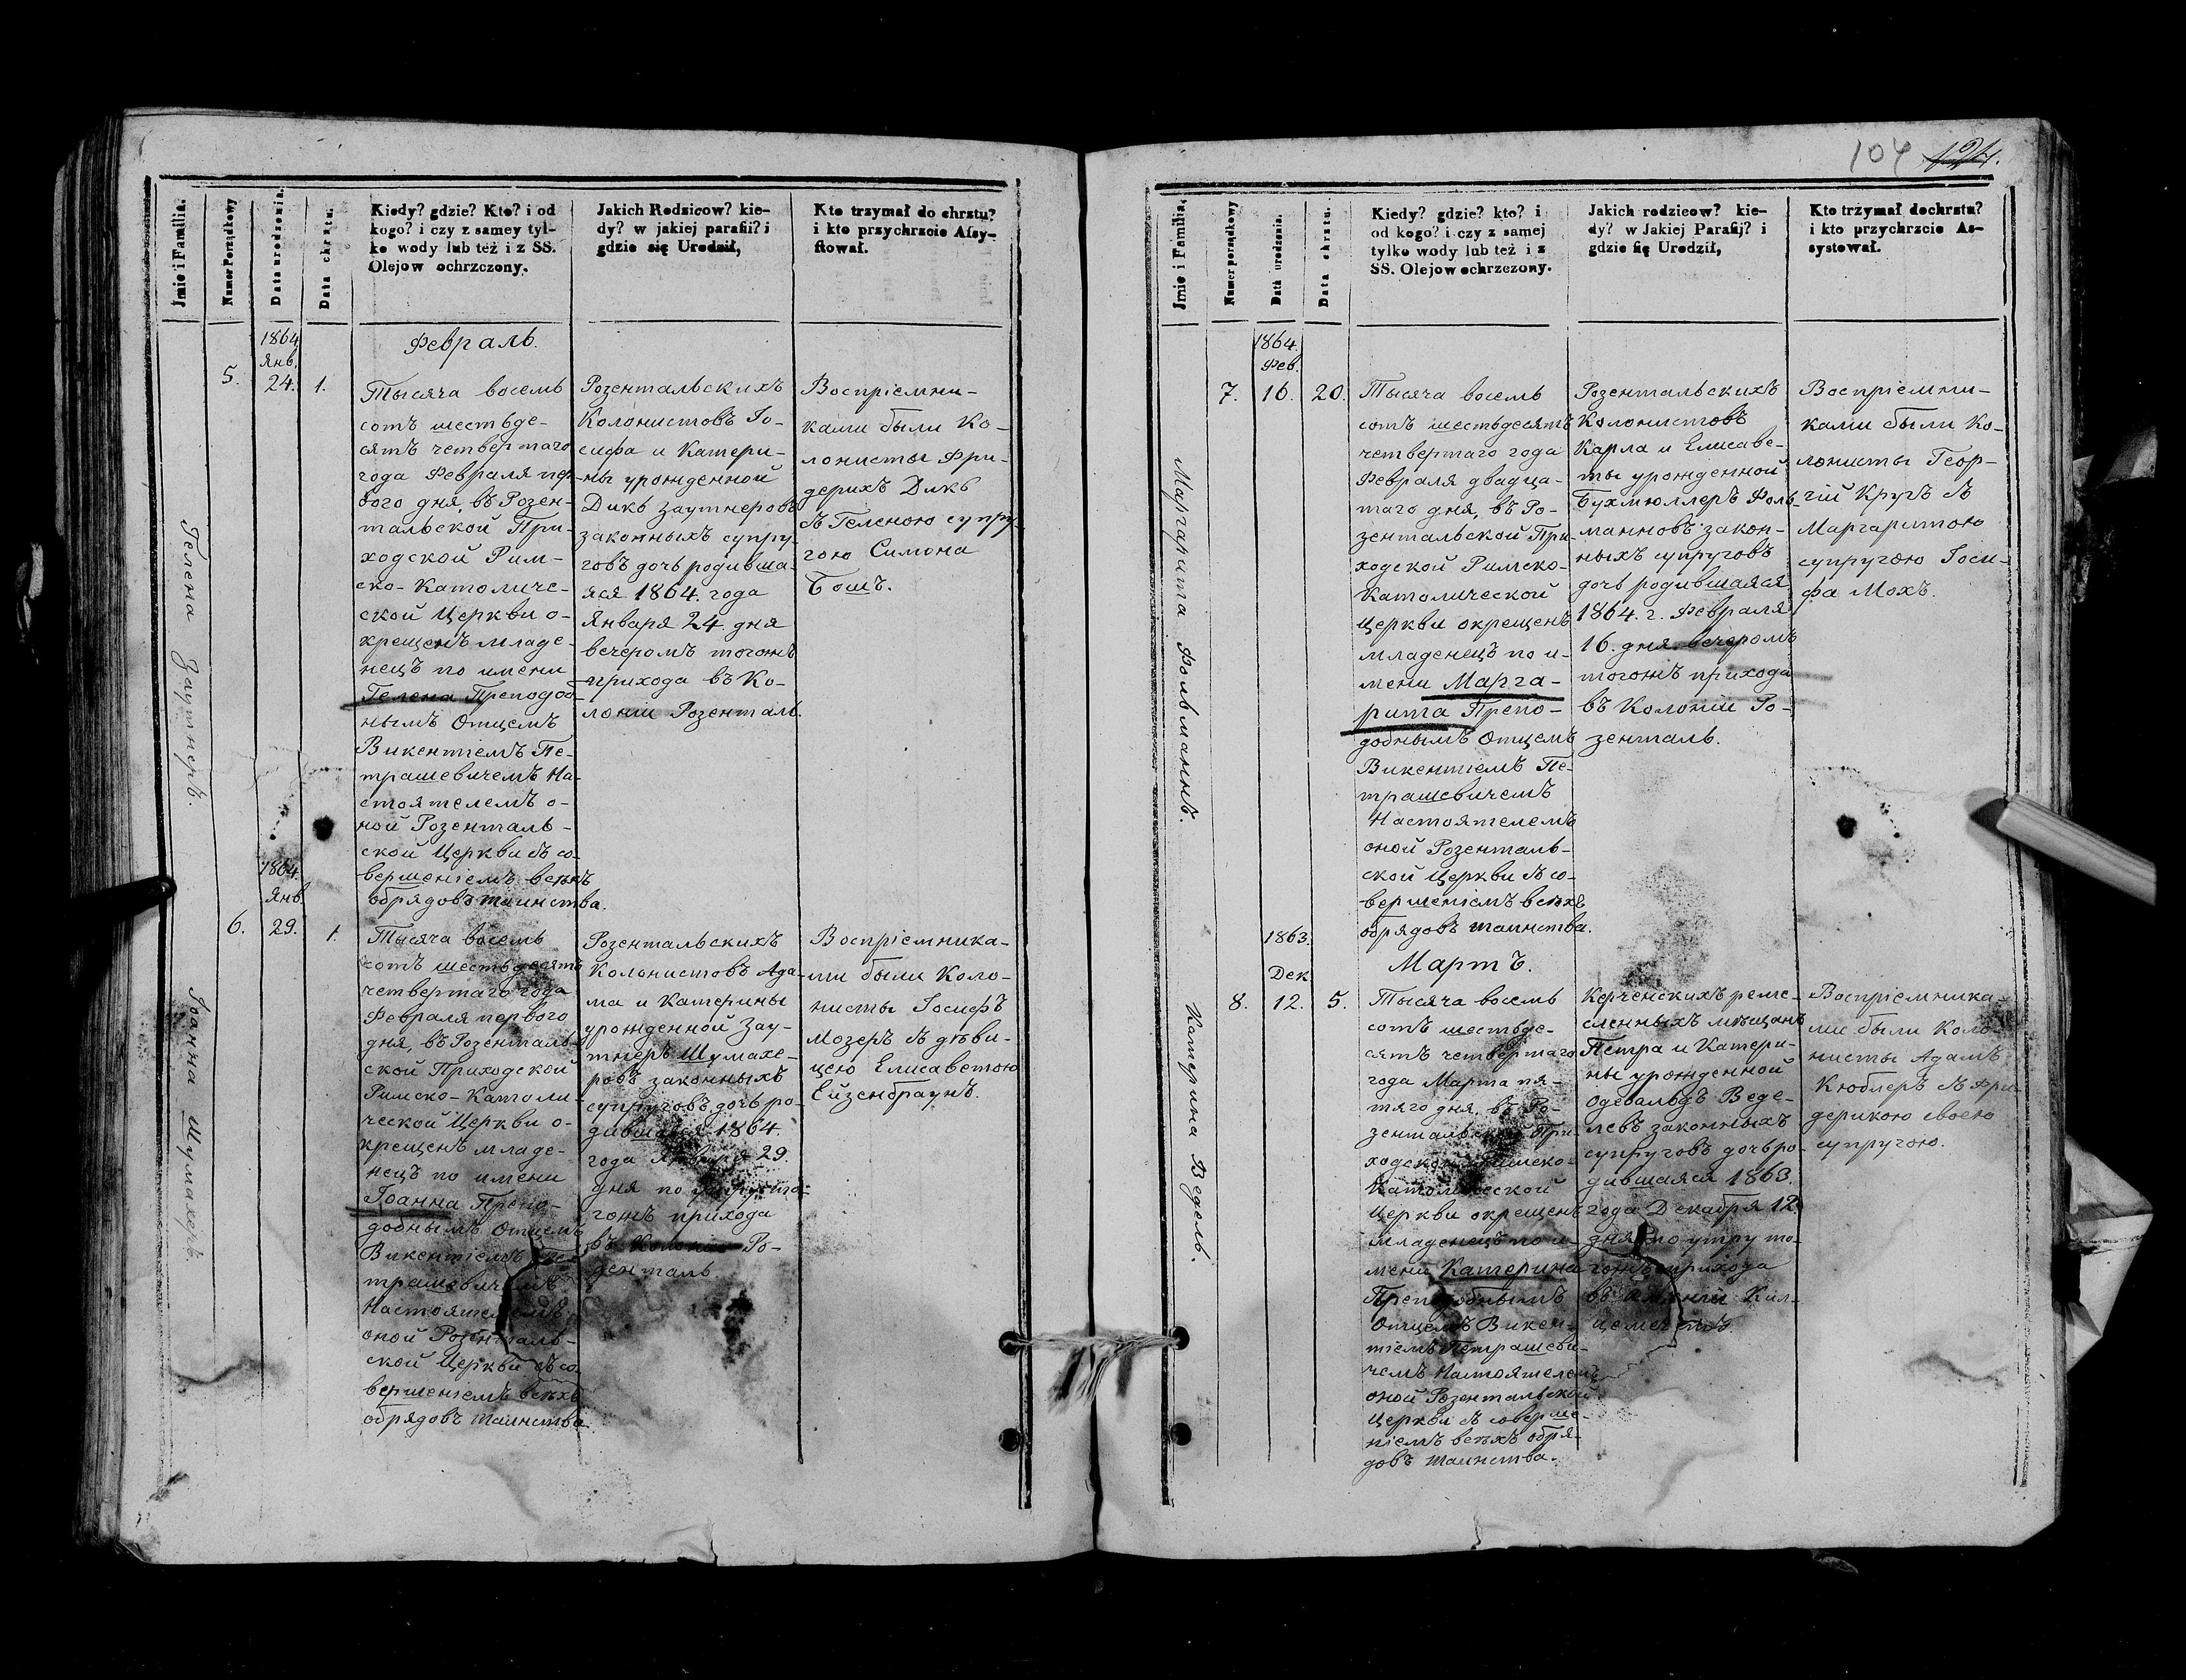 104 124.
Jmie i Familia.
Numer Porządkowy
Data urodzenia.
Data chrztu.
Kiedy? gdzie? Kto? i od
kogo? i czy z samey tyl-
ko wody lub też i z SS.
Olejow ochrzczony.
Jakich Rodzicow? kie-
dy? w jakiej parafii? i
gdzie się Urodził,
Kto trzymał do chrztu?
i kto przychrzcie Assy-
stował.
Гелена Заутнеръ.
5.
1864
Янв.
24.
1.
Февраль.
Тысяча восемь
сотъ шестьде-
сятъ четвертаго
года Февраля пер-
вого дня, въ Розен-
тальской При-
ходской Рим-
ско-Католиче-
ской Церкви о-
крещенъ младе-
нецъ по имени
Гелена Преподоб-
нымъ Отцемъ
Викентіемъ Пе-
трашевичемъ На-
стоятелемъ о-
ной Розенталь-
ской Церкви съ со-
вершеніемъ всѣхъ
обрядовъ таинства.
Розентальскихъ
Колонистовъ Іо-
сифа и Катери-
ны урожденной
Дикъ Заутнеровъ
законныхъ супру-
говъ дочь родивша-
яся 1864. года
Января 24. дня
вечеромъ тогожъ
прихода въ Ко-
лоніи Розенталь.
Воспріемни-
ками были Ко-
лонисты Фри-
дерихъ Дикъ
съ Геленою супру-
гою Симона
Бошъ.
Іоанна Шумахеръ.
6.
1864.
Янв.
29.
1.
Тысяча восемь
сотъ шестьдесятъ
четвертаго года
Февраля первого
дня, въ Розенталь-
ской Приходской
Римско-Католи-
ческой Церкви о-
крещенъ младе-
нецъ по имени
Іоанна Препо-
добнымъ Отцемъ
Викентіемъ Пе-
трашевичемъ
Настоятелемъ
оной Розенталь-
ской Церкви съ со-
вершеніемъ всѣхъ
обрядовъ таинства.
Розентальскихъ
Колонистовъ Ада-
ма и Катерины
урожденной Зау-
тнеръ Шумахе-
ровъ законныхъ
супруговъ дочь ро-
дившаяся 1864.
года Января 29.
дня по утру то-
гожъ прихода
въ Колоніи Ро-
зенталь.
Воспріемника-
ми были Коло-
нисты Іосифъ
Мозеръ съ дѣви-
цею Елисаветою
Ейзенбраунъ.
Jmie i Familia.
Numer porządkowy
Data urodzenia.
Data chrztu.
Kiedy? gdzie? kto? i
od kogo? i czy z samej
tylko wody lub też i z
SS. Olejow ochrzczony.
Jakich rodzicow? kie-
dy? w Jakiej Parafij? i
gdzie się Urodził,
Kto trzymał dochrztu?
i kto przychrzcie As-
systował.
Маргарита Фольманнъ.
7.
1864.
Фев.
16.
20.
Тысяча восемь
сотъ шестьдесятъ
четвертаго года
Февраля двадца-
таго дня, въ Ро-
зентальской При-
ходской Римско-
Католической
Церкви окрещенъ
младенецъ по и-
мени Марга-
рита Препо-
добнымъ Отцемъ
Викентіемъ Пе-
трашевичемъ
Настоятелемъ
оной Розенталь-
ской Церкви съ со-
вершеніемъ всѣхъ
обрядовъ таинства.
Розентальскихъ
Колонистовъ
Карла и Елисаве-
ты урожденной
Бухмюллеръ Фоль-
манновъ закон-
ныхъ супруговъ
дочь родившаяся
1864. г. Февраля
16. дня вечеромъ
тогожъ прихода
въ Колоніи Ро-
зенталь.
Воспріемни-
ками были Ко-
лонисты Геор-
гій Кругъ съ
Маргаритою
супругою Іоси-
фа Мохъ.
Катерина Ведель.
8.
1863.
Дек
12.
5.
Мартъ.
Тысяча восемь
сотъ шестьде-
сятъ четвертаго
года Марта пя-
тяго дня, въ Ро-
зентальской При-
ходской Римско-
Католической
Церкви окрещенъ
младенецъ по и-
мени Катерина
Преподобнымъ
Отцемъ Викен-
тіемъ Петрашеви-
чемъ Настоятелемъ
оной Розентальской
Церкви съ соверше-
ніемъ всѣхъ обря-
довъ таинства.
Керченскихъ реме-
сленныхъ мѣщанъ
Петра и Катери-
ны урожденной
Одевальдъ Веде-
левъ законныхъ
супруговъ дочь ро-
дившаяся 1863.
года Декабря 12
дня по утру то-
гожъ прихода
въ
Воспріемника-
ми были Коло-
нисты Адамъ
Кюблеръ съ Фри-
дерикою своею
супругою.